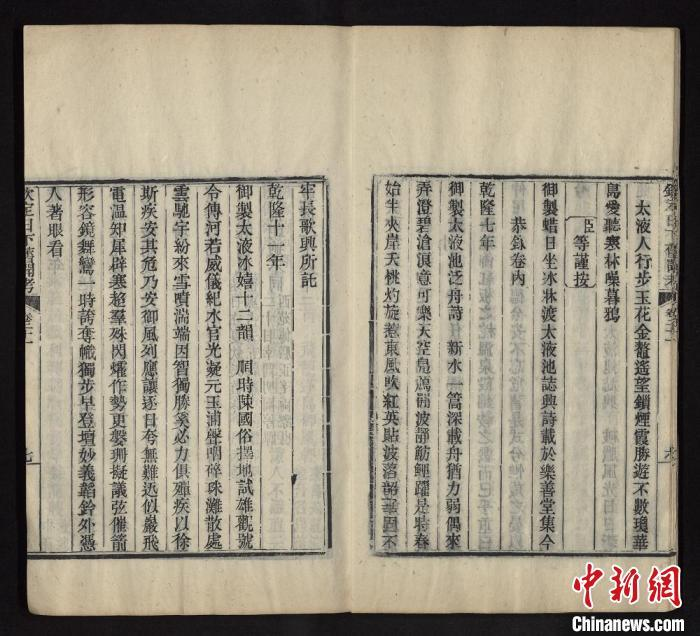 太液人行步玉花金鰲遙望鎖煙霞勝遊不數瓊華
島愛聽寒林噪暮鴉
臣等謹按
御製蜡日坐冰牀渡太液池誌興詩載於樂善堂集今
恭錄卷内
乾隆七年
御製太液池泛舟詩 新水一篙深載舟猶力弱偶來
弄澄碧滄浪意可樂天空鳥萬翩波靜魴鯉躍是時春
始半夾岸天桃灼旋惹東風吹紅英貼波落韶華固不
牢長歌興所託
乾隆十一年
御製太液冰嬉十二韻 順時陳國俗擇地試雄觀號
令傳河若威儀紀水官光凝元玉浦聲唽碎珠灘散處
雲馳宇紛來雪噴湍端因智獨勝奚必力俱殫疾以徐
斯疾安其危乃安御風列應讓逐日夸無難迅似巖飛
電溫知犀辟寒趫羣殊閃爚作勢更盤珊擬議弦催箭
形容鏡舞鸞一時誇奪幟獨步早登壇妙義韜鈐外憑
人著眼看
欽定日下舊聞考 卷二十一 七
中新網
Chinanews.com